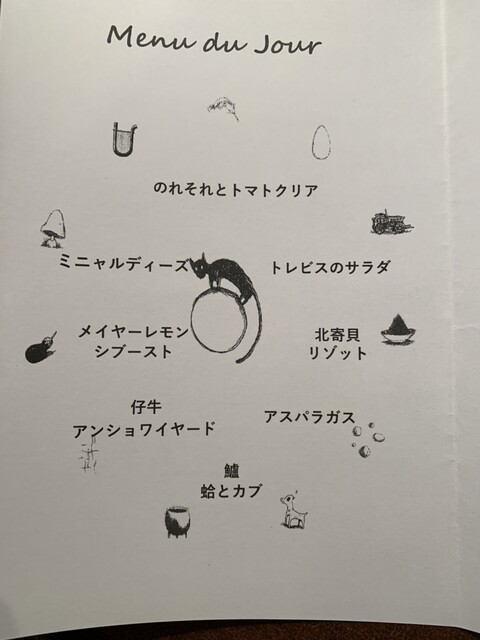 Menu du Jour
のれそれとトマトクリア
トレビスのサラダ
北寄貝
リゾット
アスパラガス
鱸
蛤とカブ
仔牛
アンショワイヤード
メイヤーレモン
シブースト
ミニャルディーズ